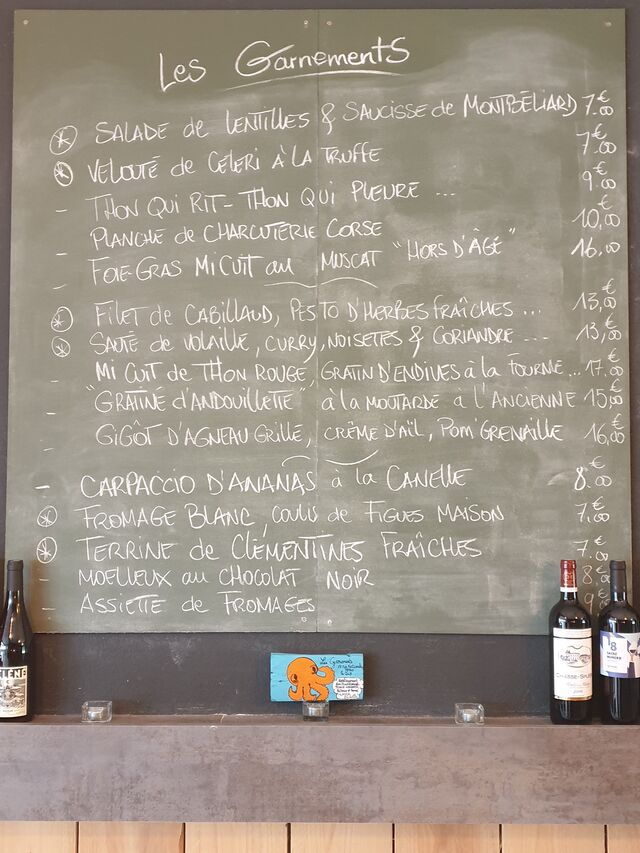 Les Garnements
* SALADE de LENTILLES & SAUCISSE de MONTBÉLIARD 7.00€
* VELOUTÉ de CÉLERI À LA TRUFFE 7.00€
- THON QUI RIT - THON QUI PLEURE ... 9.00€
- PLANCHE de CHARCUTERIE CORSE 10,00€
- FOIE GRAS MI CUIT au MUSCAT "HORS D'ÂGE" 16.00€
* FILET de CABILLAUD, PESTO D'HERBES FRAÎCHES ... 13,00€
* SAUTÉ de VOLAILLE, CURRY, NOISETTES & CORIANDRE ... 13,00€
- MI CUIT de THON ROUGE, GRATIN D'ENDIVES à la FOURME ... 17.00€
- "GRATINÉ d'ANDOUILLETTE" à la MOUTARDE à l'ANCIENNE 15,00€
- GIGÔT D'AGNEAU GRILLÉ, CRÈME D'AÏL, POM'GRENAILLE 16,00€
- CARPACCIO D'ANANAS à la CANELLE 8.00€
* FROMAGE BLANC, COULIS de FIGUES MAISON 7.00€
* TERRINE de CLÉMENTINES FRAÎCHES 7.00€
- MOELLEUX au CHOCOLAT NOIR 8.
- ASSIETTE de FROMAGES 9
Les Garnements
CHASSE-SPLEEN